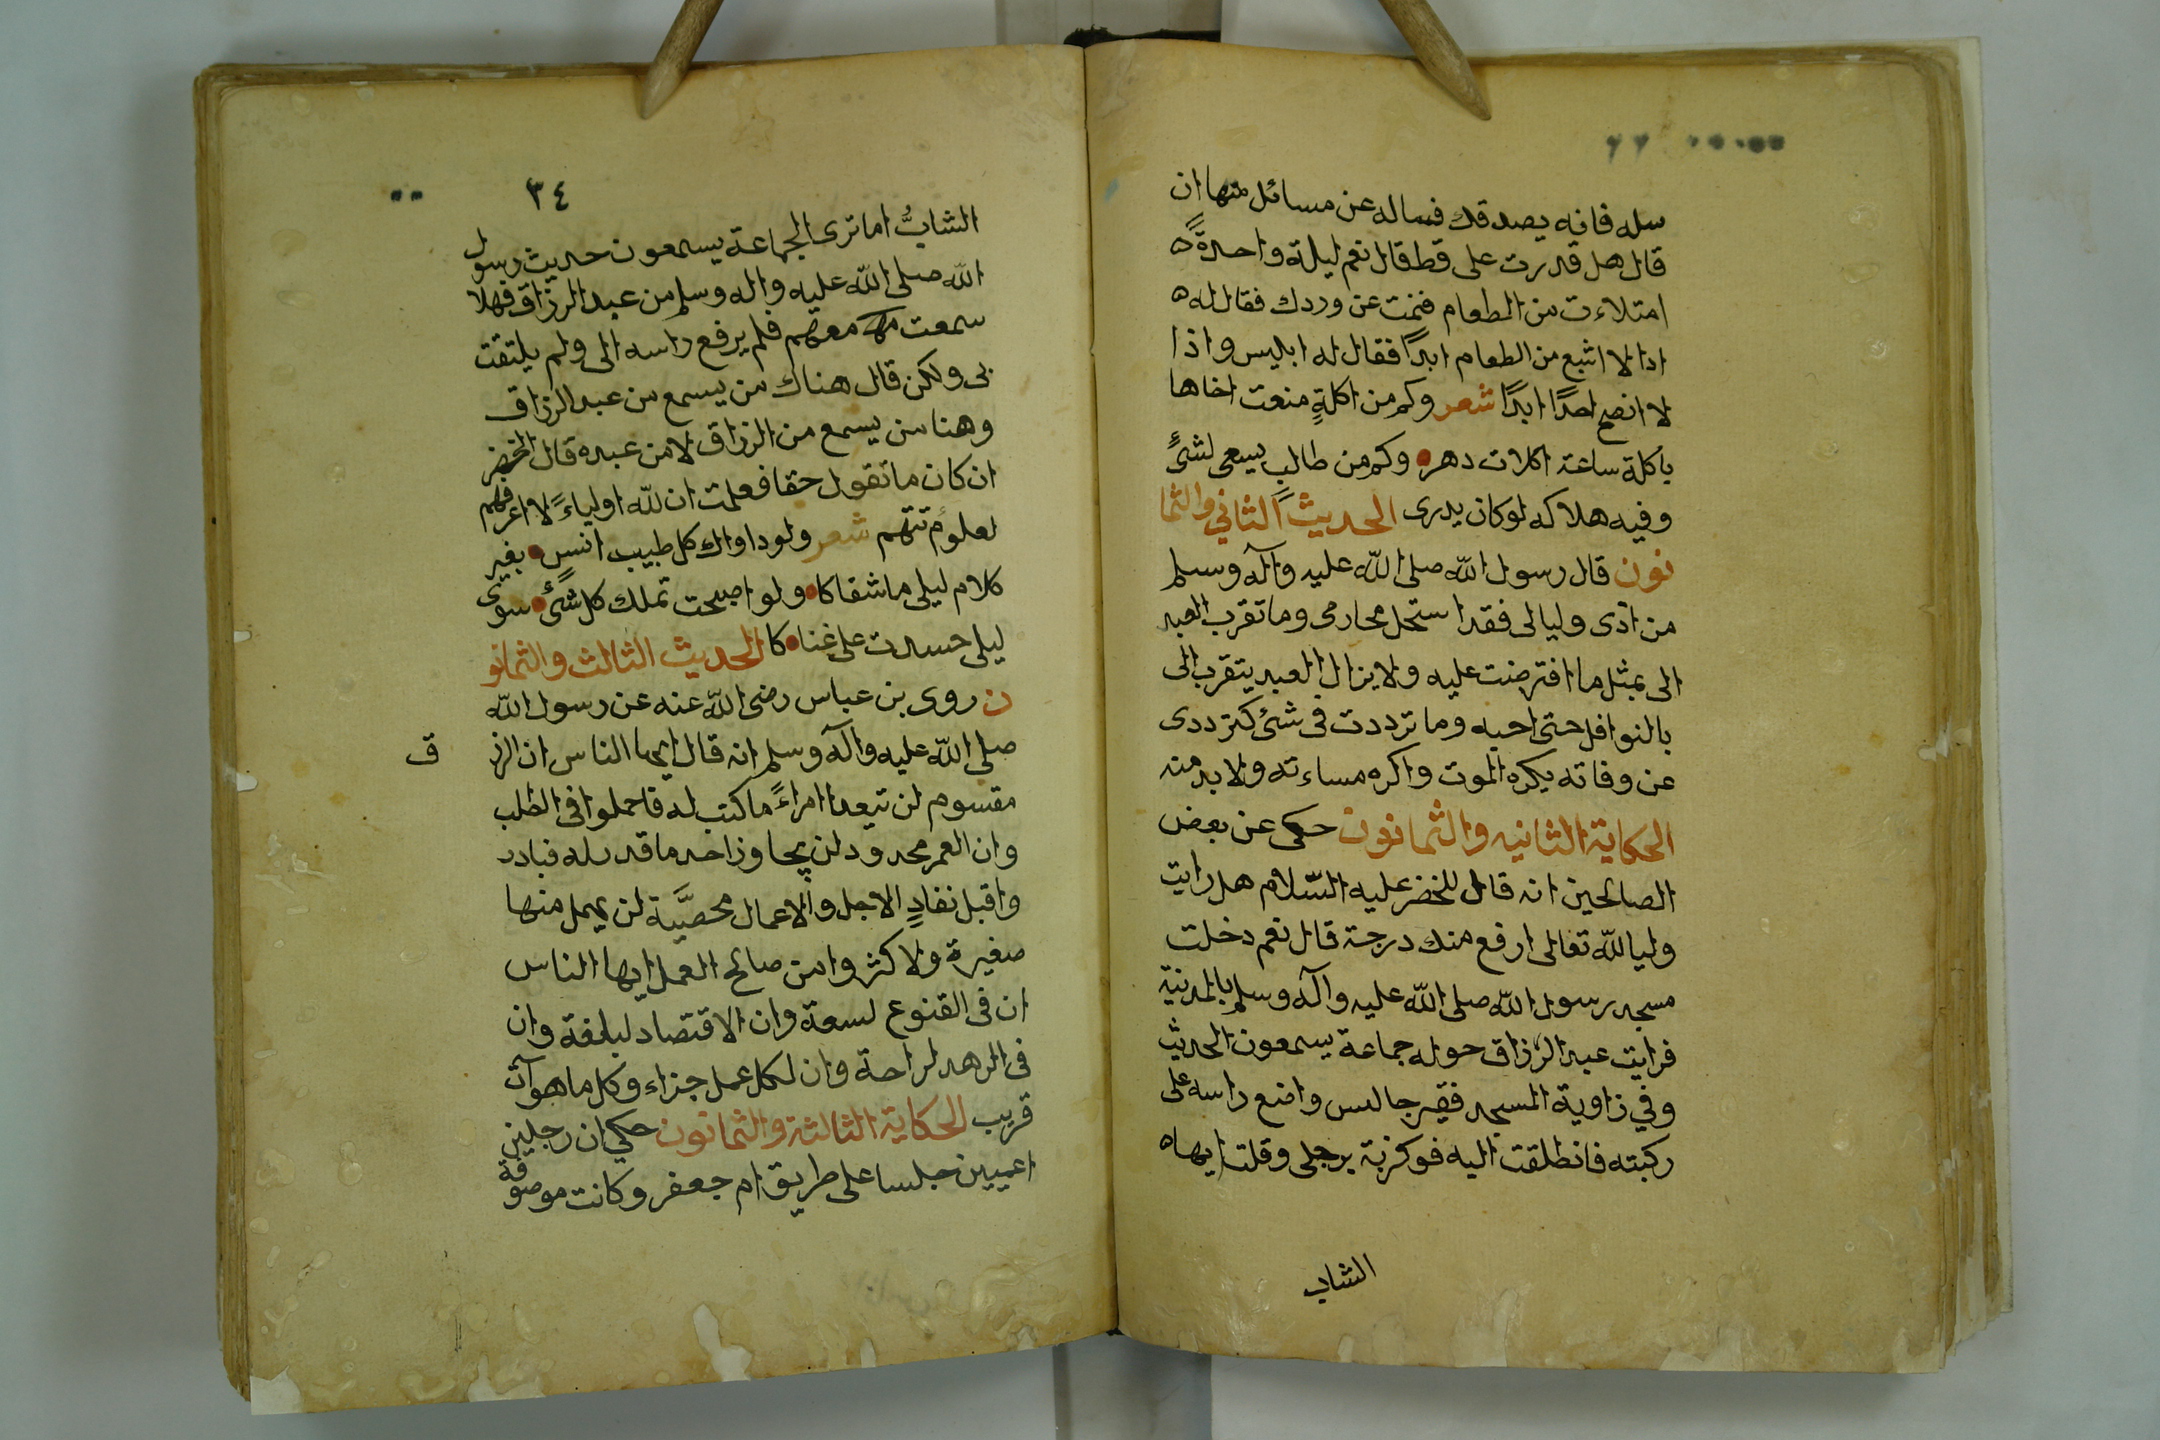 سله فانه يصدقك فساله عن مسائل منها ان
قال هل قدرت على قط قال نعم ليلة واحدةً
امتلاءت من الطعام فنمت عن وردك فقال له
اذا لا اشبع من الطعام ابدًا فقال له ابليس واذا
لا انصح احدًا ابدًا شعر وكم من اكلةٍ منعت اخاها
باكلة ساعة اكلات دهر وكم من طالب يسعى لشئٍ
وفيه هلاكه لو كان يدرى الحديث الثاني والثما
نون قال رسول الله صلى الله عليه وآله وسلم
من اذى وليا لى فقد استحل محارمى وما تقرب العبد
الى بمثل ما افترضت عليه ولا يزال العبد يتقرب الى
بالنوافل حتى احبه وما ترددت فى شئ كترددى
عن وفاته يكره الموت واكره مساءته ولا بد منه
الحكاية الثانيه والثمانون حكى عن بعض
الصالحين انه قال للخضر عليه السّلام هل رايت
وليا لله تعالى ارفع منك درجة قال نعم دخلت
مسجد رسول الله صلى الله عليه وآله وسلم بالمدينة
فرايت عبد الرزاق حوله جماعة يسمعون الحديث
وفي زاوية المسجد فقير جالس واضع راسه على
ركبته فانطلقت اليه فوكزته برجلى وقلت ايها
الشاب
٣٤
الشابُّ اما ترى الجماعة يسمعون حديث رسول
الله صلى الله عليه واله وسلم من عبد الرزاق فهلا
سمعت معهم فلم يرفع راسه الى ولم يلتفت
بى ولكن قال هناك من يسمع من عبد الرزاق
وهنا من يسمع من الرزاق لا من عبده قال الخضر
ان كان ما تقول حقا فعلمت ان لله اولياءً لا اعرفهم
لعلوم تتهم شعر ولو داواك كل طبيب انس بغير
كلام ليلى ما شفاكا ولو اصبحت تملك كل شئٍ سوى
ليلى حسدت على غناكا الحديث الثالث والثمانو
ن روى بن عباس رضى الله عنه عن رسول الله
صلى الله عليه وآله وسلم انه قال ايها الناس ان الرز
ق
مقسوم لن تيعدا امراءً ما كتب له فاحملوا فى الطلب
وان العمر محدود لن يجاوز احد ما قدر له فبادر
واقبل نفادِ الاجل والاعمال محصيَّة لن يهمل منها
صغيرة ولا كثر وامن صالح العمل ايها الناس
ان فى القنوع لسعة وان الاقتصاد لبلغة وان
فى الزهد لراحة وان لكل عمل جزاء وكل ما هو آت
قريب الحكاية الثالثة والثمانون حكي ان رجلين
اعميين جلسا على طريق ام جعفر وكانت موصوفة